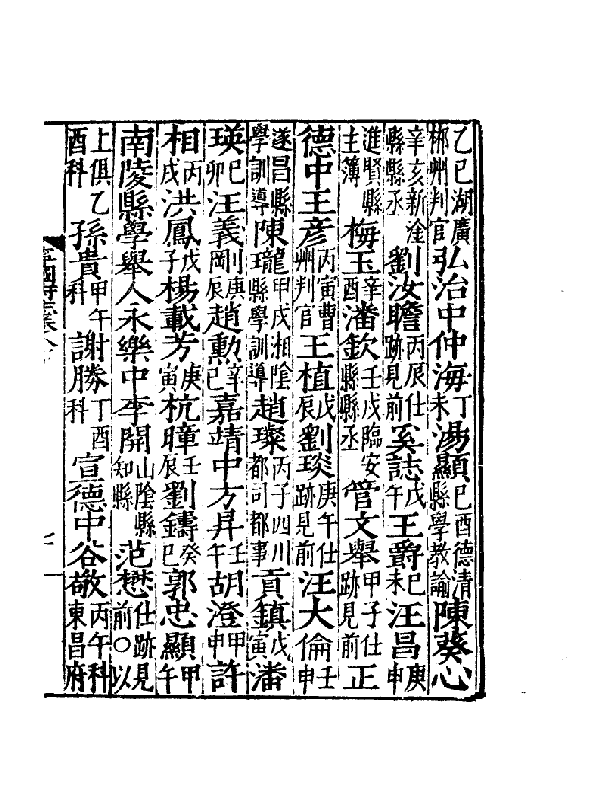 乙巳湖廣郴州判官弘治中仲海丁未湯顯己酉德清縣學教諭陳葵心
辛亥新淦縣縣丞劉汝瞻丙辰仕跡見前奚誌戊午王爵己未汪昌庚申
進賢縣主簿梅玉辛酉潘欽壬戌臨安縣縣丞管文舉甲子仕跡見前正
德中王彥丙寅曹州判官王植戊辰劉琰庚午仕跡見前汪大倫壬申
遂昌縣學訓導陳瓏甲戌湘陰縣學訓導趙璨丙子四川都司都事貢鎮戊寅潘
瑛己卯汪義剛庚辰趙勲辛巳嘉靖中方昇壬午胡澄甲申許
相丙戌洪鳳戊子楊載芳庚寅杭暲壬辰劉鑄癸巳郭忠顯甲午
南陵縣學舉人永樂中李開山陰縣知縣范懋仕跡見前○以
上俱乙酉科孫貴甲午科謝勝丁酉科宣德中谷敬丙午科東昌府